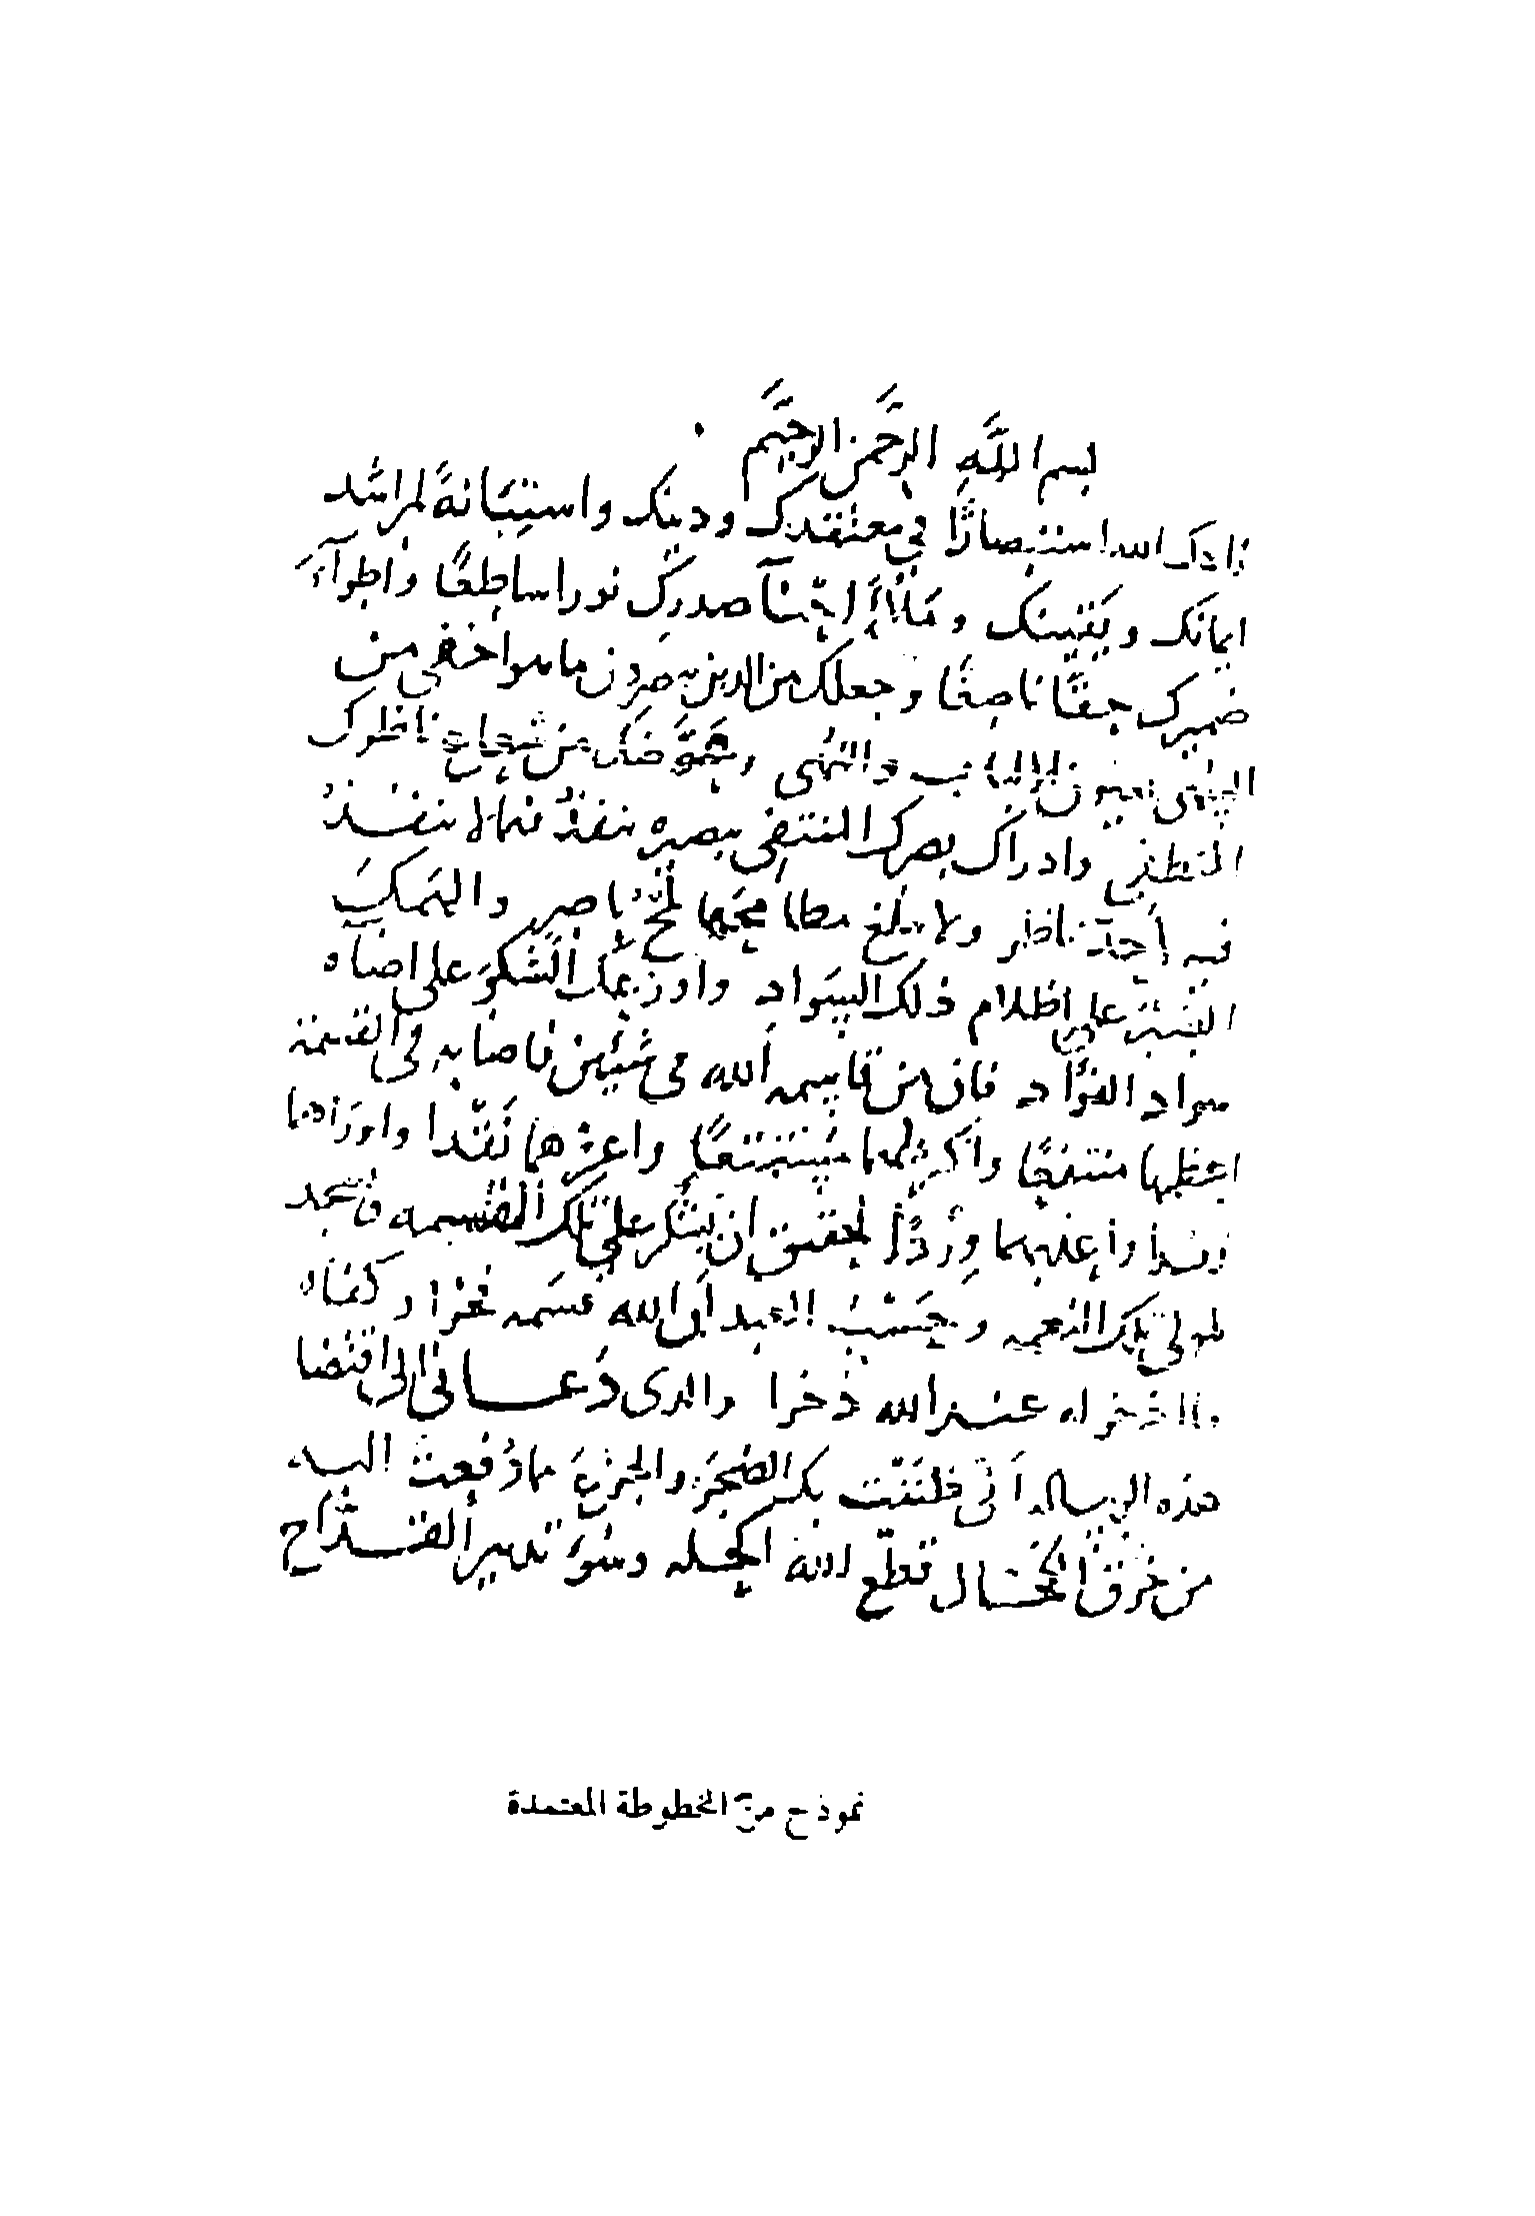 بسم اللَّهِ الرَّحمن الرحيم
زادك الله استبصارًا في معتقدك ودينك واستِبَانةً لمراشد
ايمانك ويَقينك وملأ احنآ صدرك نورا ساطِعًا واطوآءَ
ضميرك حقًّا ناصِعًا وجعلك من الذين يبصرون ما هو اخفى من
بعيون الالباب والنُهى وعَوَّضك من شعاع ناظرك
المنطفى وادراك بصرك المنتفى بصيره تنفذُ فيما لا ينفذُ
فيه أحدّ ناظر ولا يبلغ مطامحَها لمح باصر والهمكَ
الصَّبرَ على اظلام ذلك السَواد واوزعك الشكرَ على اضآه
سواد الفؤاد فان من قاسمه الله في شَيئين فاصابه في القسمة
اعظمها منتفعًا واكرمهما مستمتعًا واعزّهما نَقْدا واوراهما
زندا واعذبهما وِرْدًا لحقيق ان يشكر على تلك القسيمه فيحمد
لمولى تلك النعمه وحَسْبُ العبد أن الله قسيمه فخرا وكفاه
عند الله ذُخرا والذى دَعانى الى اقتضا
هذه الرساله أنى خلتَفت بك الضجَر والجزع مما دُفعت اليه
من خرق قطع الله وسُوء تدبير القدّاح
نموذج من المخطوطة المعتمدة